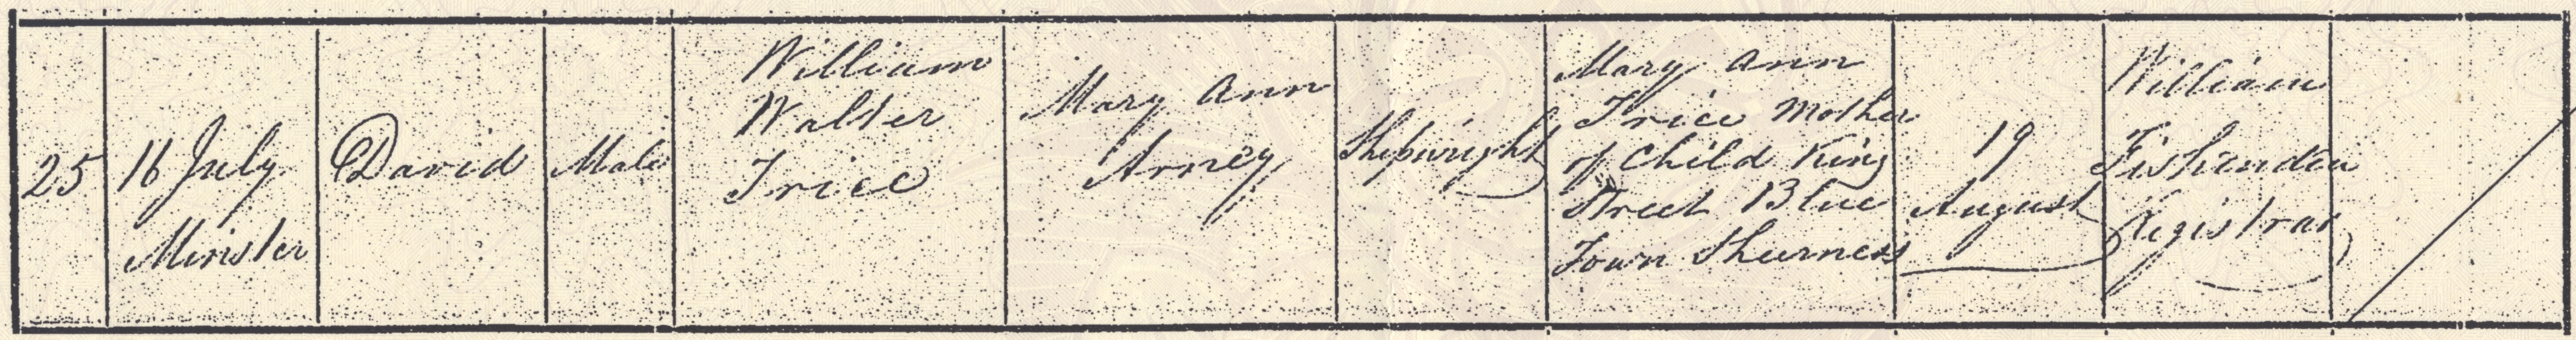 25
16 July
Minister
David
Male
William
Walter
Trice
Mary Ann
Arney
Shipwright
Mary Ann
Trice Mother
of Child King
Street Blue
Town Sheerness
19
August
William
Fishenden
Registrar